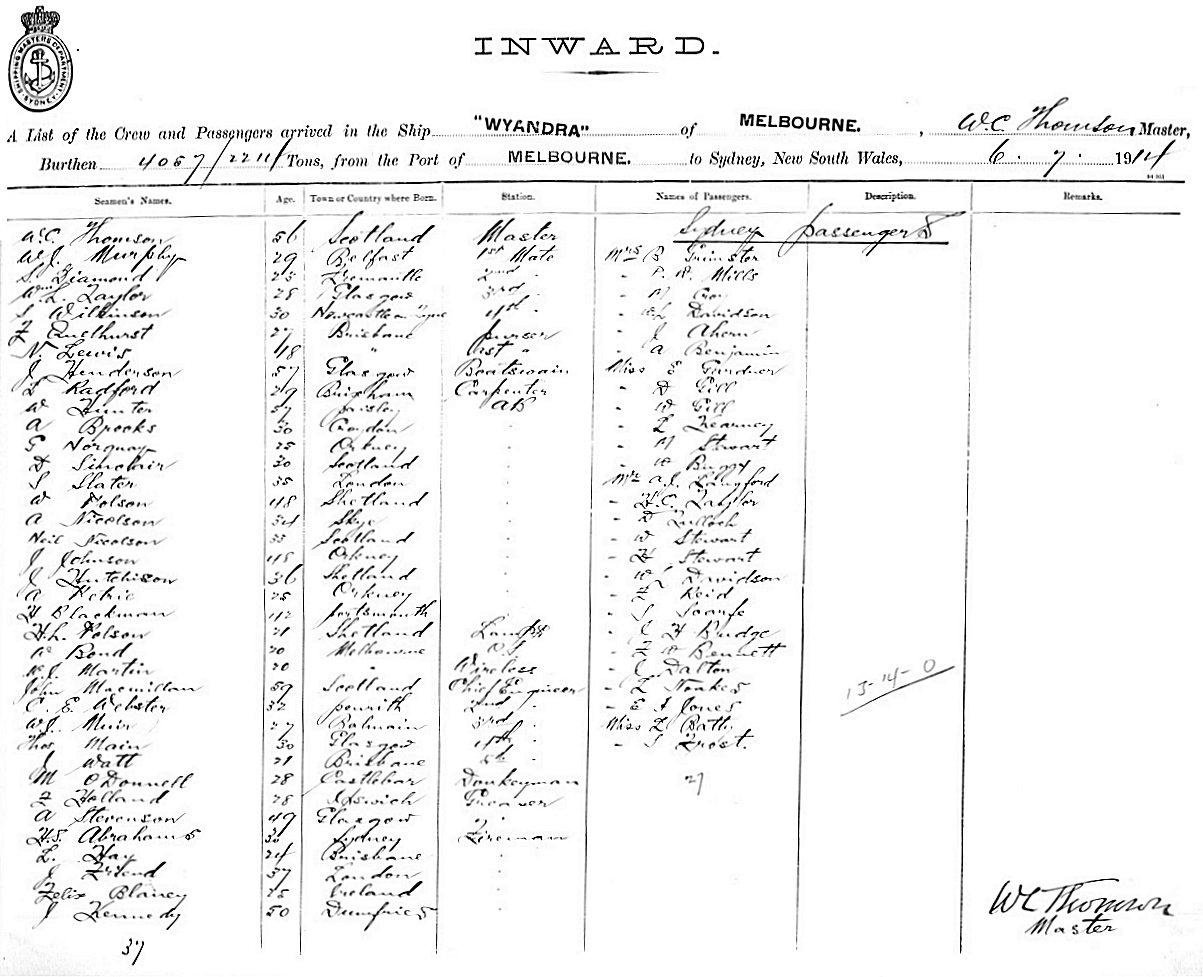 SHIPPING MASTERS DEPARTMENT
SYDNEY
INWARD.
A List of the Crew and Passengers arrived in the Ship "WYANDRA" of MELBOURNE. , W.C Thomson Master,
Burthen 4057/2211 Tons, from the Port of MELBOURNE. to Sydney, New South Wales, 6. 7. 1914
Seamen's Names. Age. Town or Country where Born. Station. Names of Passengers. Description. Remarks.
Sydney passengers
W.C. Thomson 56 Scotland Master
W.J. Murphy 29 Belfast 1st Mate Mrs B
S Diamond 25 Fremantle 2nd " - Mills
Wm L. Taylor 28 Glasgow 3rd " - M
S Wilkinson 30 Newcastle on Tyne 4th " - Davidson
F 27 Brisbane purser - J Ahern
N. Lewis 18 " asst " - A Benjamin
J Henderson 57 Glasgow Boatswain Miss E Gardner
L Radford 29 Brixham Carpenter - D Gill
W Hunter 57 paisley AB - W Gill
A Brooks 30 Croydon " - L Kearney
G Norquay 25 Orkney " - M Stewart
D Sinclair 30 Scotland " - W Buggy
S Slater 35 London " Mr A.J. Langford
W Polson 48 Shetland " - H.C. Taylor
A Nicolson 34 Skye " - D Tulloch
Neil Nicolson 33 Scotland " - W Stewart
J Johnson 48 Orkney " - H Stewart
J Hutchison 36 Shetland " - W Davidson
A Petrie 25 Orkney " - F Reid
H Blackman 42 portsmouth " - S Scarfe
H.L. Polson 21 Shetland Lamps - J H Budge
W Bond 20 Melbourne O.S - F W Bennett
W.J. Martin 20 " Wireless - J Dalton
John Macmillan 59 Scotland Chief Engineer - L Noakes
C. E. Webster 32 penrith 2nd " - E A Jones
W.J. Muir 27 Balmain 3rd " Miss L Bath.
Thos Main 30 Glasgow 4th " - S Frost.
J Watt 21 Brisbane 5th "
M O'Donnell 28 Castlebar Donkeyman 27
F Holland 28 Ipswich Greaser
A Stevenson 49 Glasgow "
H.S. Abrahams 30 Sydney Fireman
L. Hay 24 Brisbane "
J Friend 37 London "
Felix Blaney 25 Ireland "
J Kennedy 50 Dumfries "
37
13-14-0
WC Thomson
Master